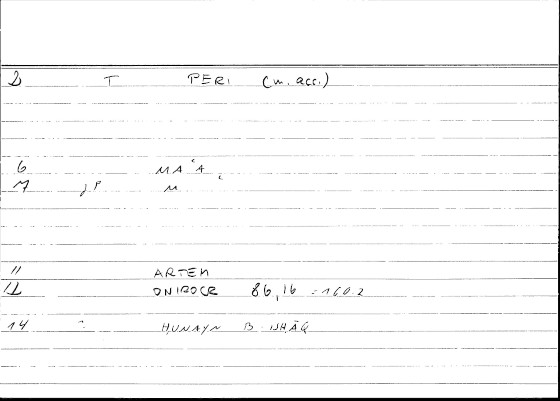 2 T PERI (m. acc.)
6 MA'A
7 M
11 ARTEM
12 ONIROCR 86,16 = 160.2
14 HUNAYN B. ISHĀQ